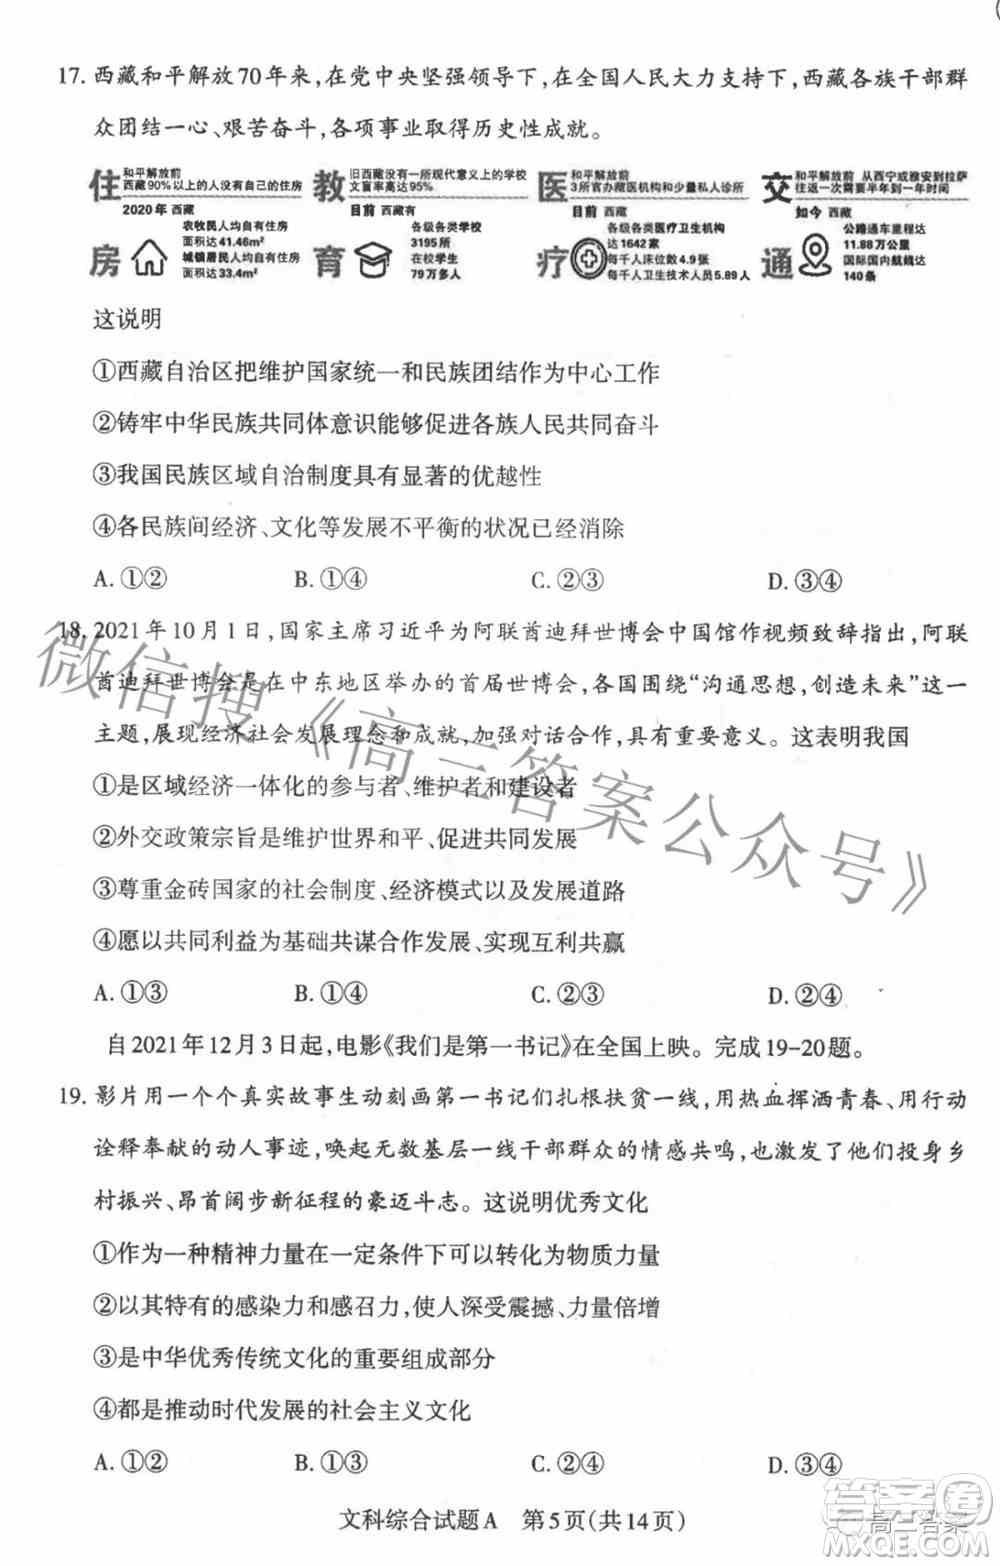 17. 西藏和平解放70年来,在党中央坚强领导下,在全国人民大力支持下,西藏各族干部群
众团结一心、艰苦奋斗,各项事业取得历史性成就。
住房
和平解放前
西藏90%以上的人没有自己的住房
2020年 西藏
农牧民人均自有住房
面积达41.46m²
城镇居民人均自有住房
面积达33.4m²
教育
旧西藏没有一所现代意义上的学校
文盲率高达95%
目前 西藏有
各级各类学校
3195所
在校学生
79万多人
医疗
和平解放前
3所官办藏医机构和少量私人诊所
目前 西藏
各级各类医疗卫生机构
达1642家
每千人床位数4.9张
每千人卫生技术人员5.89人
交通
和平解放前 从西宁或雅安到拉萨
往返一次需要半年到一年时间
如今 西藏
公路通车里程达
11.88万公里
国际国内航线达
140条
这说明
①西藏自治区把维护国家统一和民族团结作为中心工作
②铸牢中华民族共同体意识能够促进各族人民共同奋斗
③我国民族区域自治制度具有显著的优越性
④各民族间经济、文化等发展不平衡的状况已经消除
A. ①②  B. ①④  C. ②③  D. ③④
18. 2021年10月1日,国家主席习近平为阿联酋迪拜世博会中国馆作视频致辞指出,阿联
酋迪拜世博会是在中东地区举办的首届世博会,各国围绕“沟通思想,创造未来”这一
主题,展现经济社会发展理念和成就,加强对话合作,具有重要意义。这表明我国
①是区域经济一体化的参与者、维护者和建设者
②外交政策宗旨是维护世界和平、促进共同发展
③尊重金砖国家的社会制度、经济模式以及发展道路
④愿以共同利益为基础共谋合作发展、实现互利共赢
A. ①③  B. ①④  C. ②③  D. ②④
自2021年12月3日起,电影《我们是第一书记》在全国上映。完成19-20题。
19. 影片用一个个真实故事生动刻画第一书记们扎根扶贫一线,用热血挥洒青春、用行动
诠释奉献的动人事迹,唤起无数基层一线干部群众的情感共鸣,也激发了他们投身乡
村振兴、昂首阔步新征程的豪迈斗志。这说明优秀文化
①作为一种精神力量在一定条件下可以转化为物质力量
②以其特有的感染力和感召力,使人深受震撼、力量倍增
③是中华优秀传统文化的重要组成部分
④都是推动时代发展的社会主义文化
A. ①②  B. ①③  C. ②④  D. ③④
文科综合试题A 第5页(共14页)
微信搜《高三答案公众号》
答案卷
高三答案
MXQE.COM